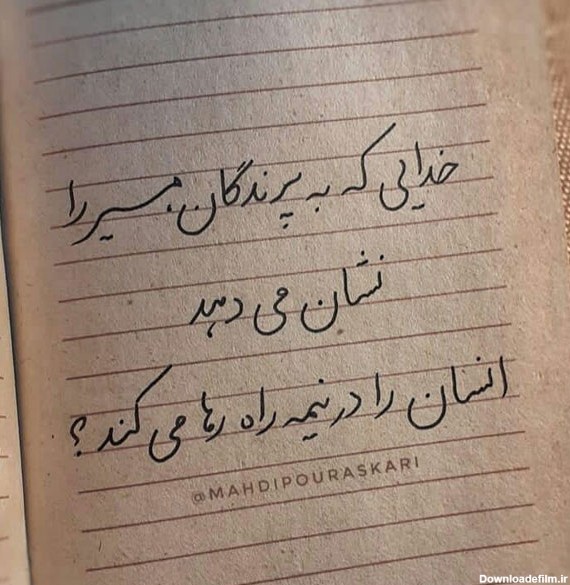 خدایی که به پرندگان، مسیر را
نشان می دهد
انسان را در نیمه راه رها می کند؟
@MAHDIPOURASKARI
Downloadefilm.ir